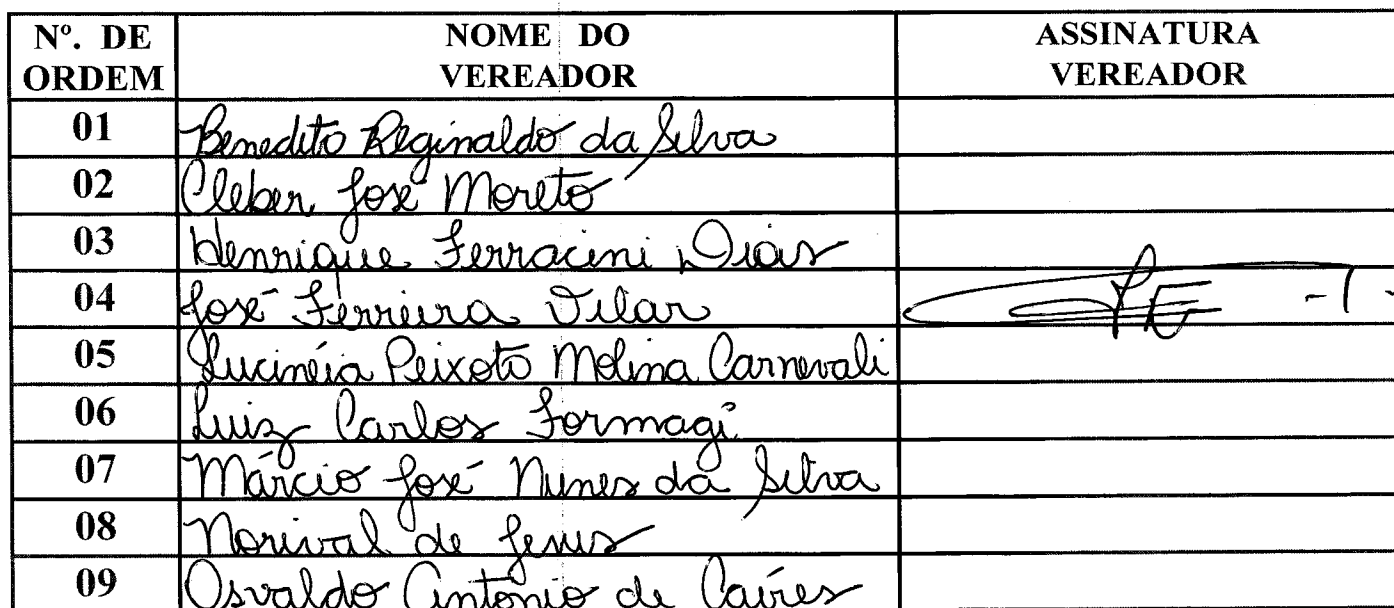 Nº. DE ORDEM NOME DO VEREADOR ASSINATURA VEREADOR
01 Benedito Reginaldo da Silva
02 Cleber José Moreto
03 Henrique Ferracini Dias
04 José Ferreira Vilar
05 Lucinéia Peixoto Molina Carnevali
06 Luiz Carlos Formagi
07 Márcio José Nunes da Silva
08 Norival de Jesus
09 Osvaldo Antonio de Caíres